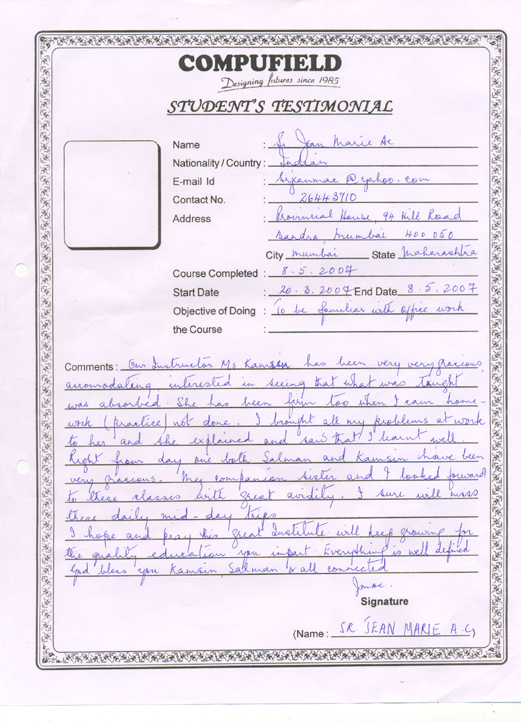 COMPUFIELD
Designing futures since 1985
STUDENT'S TESTIMONIAL
Name : Sr Jean Marie Ac
Nationality / Country : Indian
E-mail Id : srjeanmac@yahoo.com
Contact No. : 26443710
Address : Provincial House, 94 Hill Road
Bandra, Mumbai 400 050
City Mumbai State Maharashtra
Course Completed : 8.5.2007
Start Date : 20.3.2007 End Date 8.5.2007
Objective of Doing : To be familiar with office work
the Course :
Comments : Our Instructor Ms Kamsin has been very very gracious,
accomodating, interested in seeing that what was taught
was absorbed. She has been firm too when I cam home-
work (practice) not done. I brought all my problems at work
to her and she explained and saw that I learnt well.
Right from day one both Salman and Kamsin have been
very gracious. My companion sister and I looked forward
to these classes with great avidity. I sure will miss
these daily mid-day trips
I hope and pray this great Institute will keep growing for
the quality education you impart. Everything is well defined
God bless you Kamsin, Salman & all connected
Jmac.
Signature
(Name : SR. JEAN MARIE A.C)